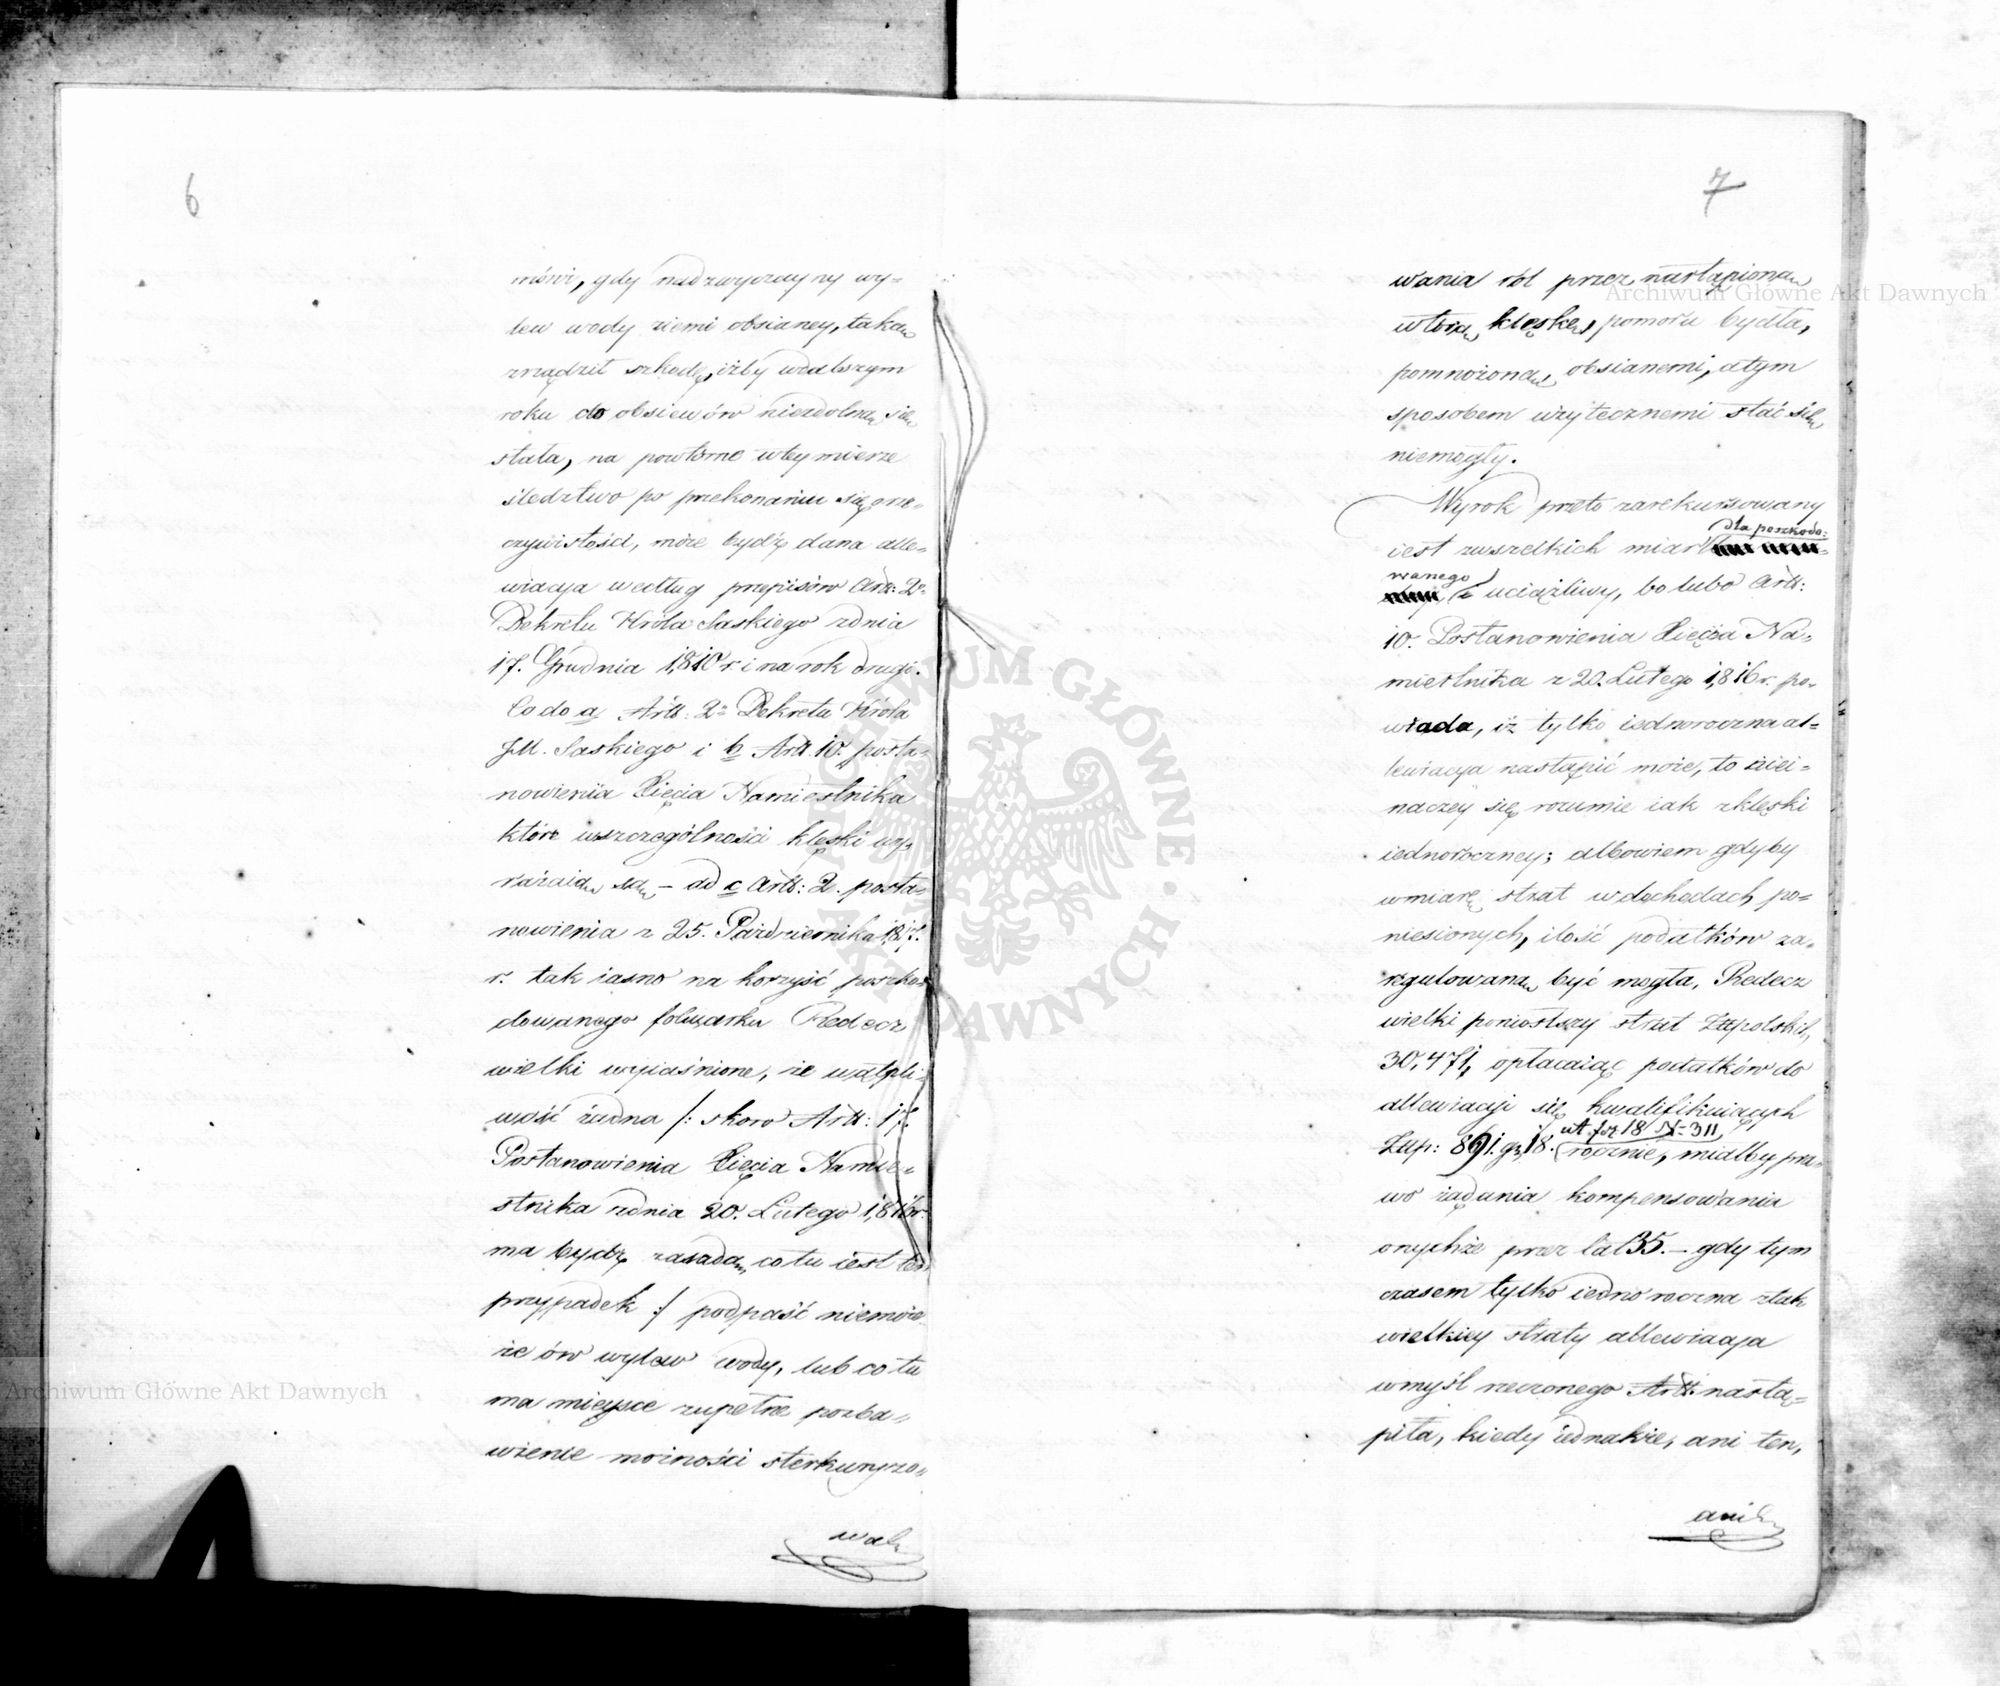 6
mówi, gdy nadzwyczayny wy=
lew wody ziemi obsianey, taką
zrządził szkodę, iżby wdalszym
roku do obsiewów niezdolną się
stała, na powtórne wtey mierze
śledztwo po przekonaniu się orze=
czywistości, może bydź dana alle=
wiacya według przepisów Art: 2o
Dekretu Króla Saskiego zdnia
17. Grudnia 1810 r. i na rok drugi.
Co do a Art: 2o Dekretu Króla
JM. Saskiego i b Art. 10. posta=
nowienia Xięcia Namiestnika
które wszczególności klęski wy=
rażaią są – ad c Art: 2. posta=
nowienia z 25. Października 1817.
r. tak iasno na korzyść poszko=
dowanego folwarku Redecz
wielki wyiaśnione, że wątpli=
wość żadna /: skoro Art: 17.
Postanowienia Xięcia Namie=
stnika zdnia 20. Lutego 1816 r.
ma bydź zasadą, co tu iest ten
przypadek :/ podpaść niemoże
że ów wylew wody, lub co tu
ma mieysce zupełne pozba=
wienie możności sterkuryzo=
wa
7
wania ról przez nastąpioną
wtórą klęskę, pomoru bydła,
pomnożoną, obsianemi, atym
sposobem użytecznemi stać się
niemogły.
Wyrok przeto zarekursowany
dla poszkodo=
iest zwszelkich miar
wanego
uciążliwy, bo lubo Art:
10. Postanowienia Xięcia Na=
miestnika z 20. Lutego 1816 r. po=
wiada, iż tylko iednoroczna al=
lewiacya nastąpić może, to niei=
naczey się rozumie iak zklęski
iednoroczney; albowiem gdyby
wmiarę strat w dochodach po=
niesionych, ilość podatków za=
regulowaną być mogła, Redecz
wielki poniosłszy strat Złpolskich,
30,471, opłacaiąc podatków do
allewiacyi się kwalifikuiących
ut fol 18 N. 311
Złp: 891. gr 18. rocznie, miałby pra=
wo żądania kompensowania
onychże przez lat 35. – gdy tym
czasem tylko iednoroczna ztak
wielkiey straty allewiacya
wmyśl rzeczonego Art. nastą=
piła, kiedy iednakże, ani ten,
ani
Archiwum Główne Akt Dawnych
Archiwum Główne Akt Dawnych
ARCHIWUM GŁÓWNE AKT DAWNYCH